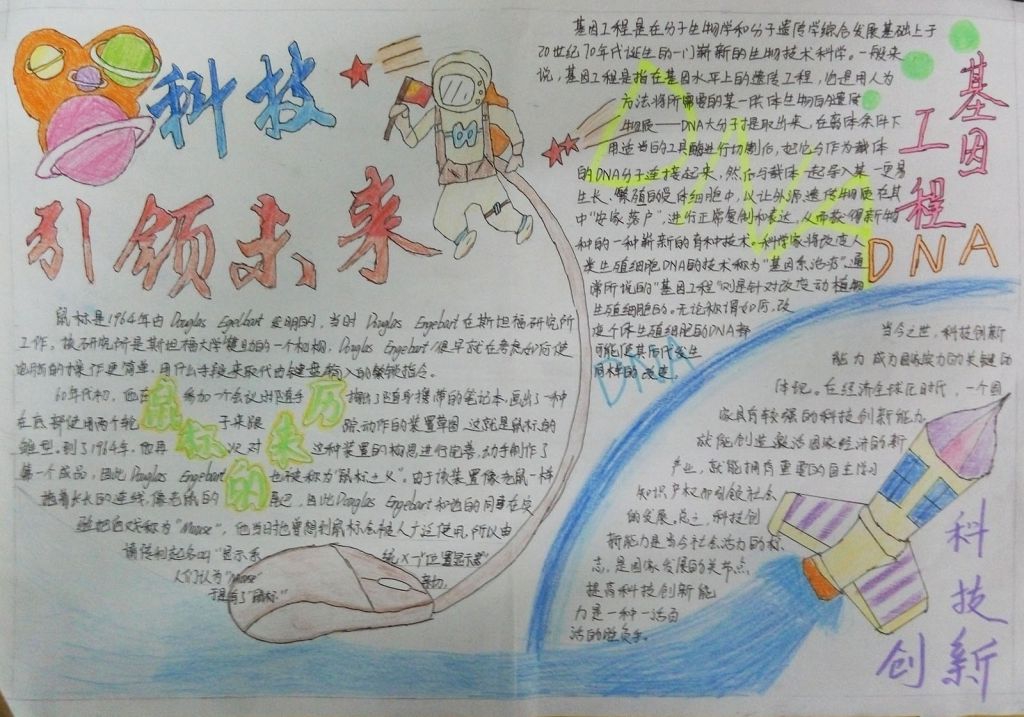 科技
引领未来
鼠标是1964年由Douglas Engelbart发明的,当时Douglas Engebart在斯坦福研究所
工作,该研究所是斯坦福大学赞助的一个机构,Douglas Engebart很早就在考虑如何使
电脑的操作更简单,用什么手段来取代由键盘输入的繁琐指令。
60年代初,他在参加一个会议时随手掏出了随身携带的笔记本,画出了一种
在底部使用两个轮子来跟踪动作的装置草图,这就是鼠标的
雏型,到了1964年,他再次对这种装置的构思进行完善,动手制作了
第一个成品,因此Douglas Engebart也被称为“鼠标之父”。由于该装置像老鼠一样
拖着长长的连线,像老鼠的尾巴,因此Douglas Engebart和他的同事在实
验把它戏称为“Mouse”,他当时也曾想到鼠标会被人广泛使用,所以申
请
“显示系统X-Y位置显示器”
人们认为“Mouse”
于是有了“鼠标”
鼠标的来历
基因工程
DNA
基因工程是在分子生物学和分子遗传学综合发展基础上于
20世纪70年代诞生的一门崭新的生物技术科学。一般来
说,基因工程是指在基因水平上的遗传工程,它是用人为
方法将所需要的某一供体生物的遗传
物质——DNA大分子提取出来,在离体条件下
用适当的工具酶进行切割后,把它与作为载体
的DNA分子连接起来,然后与载体一起导入某一更易
生长、繁殖的受体细胞中,以让外源遗传物质在其
中“安家落户”,进行正常复制和表达,从而获得新物
种的一种崭新的育种技术。科学家将改变人
类生殖细胞DNA的技术称为“基因系治疗”,通
常所说的“基因工程”则是针对改变动植物
生殖细胞的。无论称谓如何,改
变个体生殖细胞的DNA都
可能使其后代发生
同样的改变。
DNA
DNA
当今之世,科技创新
能力成为国家实力的关键的
体现。在经济全球化时代,一个国
家具有较强的科技创新能力,
就能创造激活国家经济的新
产业,就能拥有重要的自主
知识产权而引领社会
的发展。总之,科技创
新能力是当今社会活力的标
志,是国家发展的关节点,
提高科技创新能
力是一种
科技创新